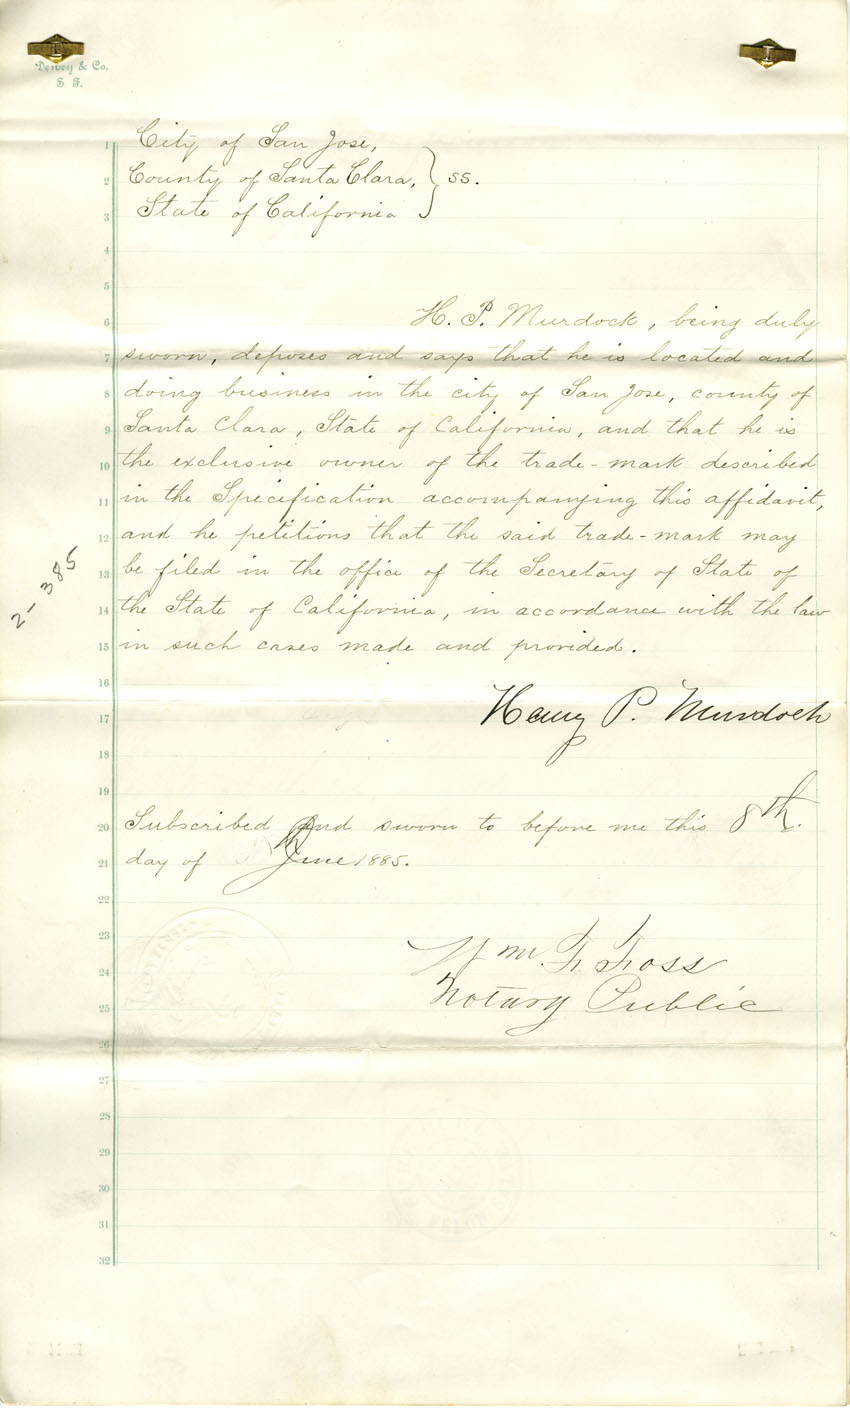 Dewey & Co.
S F.
1 City of San Jose,
2 County of Santa Clara, } ss.
3 State of California
4
5
6 H. P. Murdock, being duly
7 sworn, deposes and says that he is located and
8 doing business in the city of San Jose, county of
9 Santa Clara, State of California, and that he is
10 the exclusive owner of the trade-mark described
11 in the Specification accompanying this affidavit,
12 and he petitions that the said trade-mark may
13 be filed in the office of the Secretary of State of
14 the State of California, in accordance with the law
15 in such cases made and provided.
16
17 Henry P. Murdock
18
19
20 Subscribed and sworn to before me this 8th.
21 day of June 1885.
22
23
24 Wm. F. Foss
25 Notary Public
26
27
28
29
30
31
32
2-385